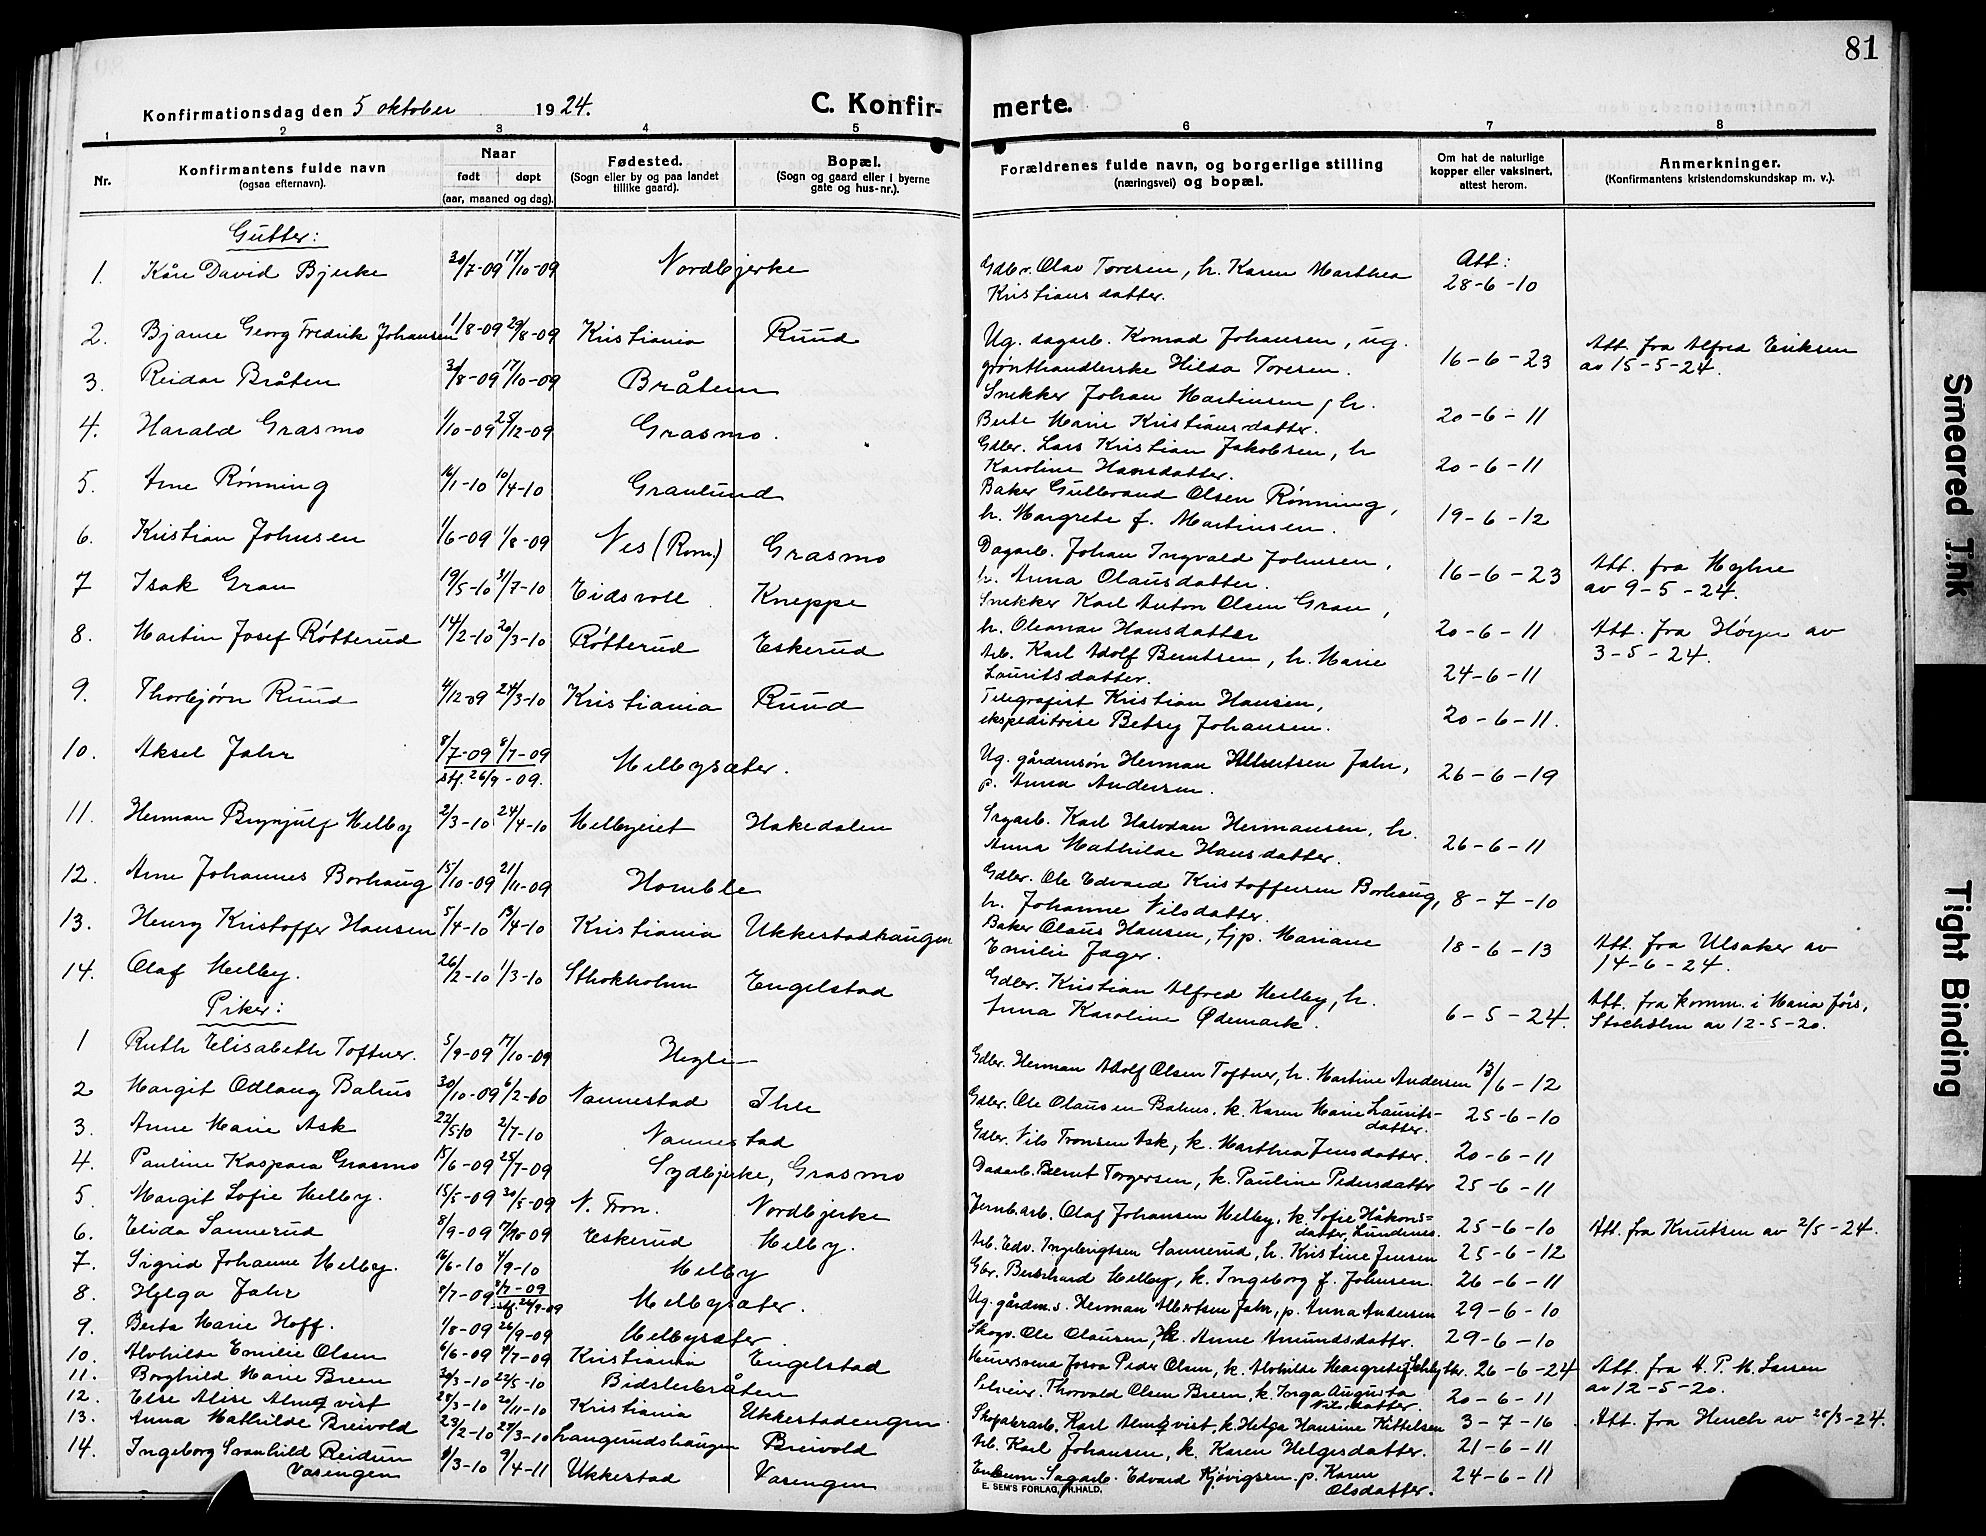 81
Konfirmationsdag den 5 oktober 1924. C. Konfirmerte.
1 2 3 4 5 6 7 8
Nr. Konfirmantens fulde navn (ogsaa efternavn). Naar født døpt (aar, maaned og dag). Fødested. (Sogn eller by og paa landet tillike gaard). Bopæl. (Sogn og gaard eller i byerne gate og hus-nr.). Forældrenes fulde navn, og borgerlige stilling (næringsvei) og bopæl. Om hat de naturlige kopper eller vaksinert, attest herom. Anmerkninger. (Konfirmantens kristendomskundskap m. v.).
Gutter:
1. Kåre David Bjerke 30/7-09 17/10-09 Nordbjerke Gdbr. Olav Toresen, h. Karen Marthea Kristiansdatter. Att: 28-6-10
2. Bjarne Georg Fredrik Johansen 1/8-09 29/8-09 Kristiania Ruud Ug. dagarb. Konrad Johansen, ug. grønthandlerske Hilda Toresen. 16-6-23 Att. fra Alfred Eriksen av 15-5-24.
3. Reidar Bråten 30/8-09 17/10-09 Bråten Snekker Johan Martinsen, h. Berte Marie Kristiansdatter. 20-6-11
4. Harald Grasmo 1/10-09 25/12-09 Grasmo. Gdbr. Lars Kristian Jakobsen, h Karoline Hansdatter. 20-6-11
5. Arne Rønning 16/1-10 10/4-10 Granlund Baker Gulbrand Olsen Rønning, h. Margrete f. Martinsen. 19-6-12
6. Kristian Johnsen 1/6-09 1/8-09 Nes (Rom.) Grasmo Dagarb. Johan Ingvald Johnsen, h. Anna Olausdatter. 16-6-23 Att. fra Myhre av 9-5-24.
7 Isak Gran 19/5-10 31/7-10 Eidsvoll Kneppe Snekker Karl Anton Olsen Gran, h. Oleanar Hansdatter 20-6-11 Att. fra Høyer av 3-5-24.
8. Martin Josef Røtterud 14/2-10 20/3-10 Røtterud Eskerud Arb. Karl Adolf Berntsen, h. Marie Lauritsdatter. 24-6-11
9. Thorbjørn Ruud 4/12-09 24/3-10 Kristiania Ruud Telegrafist Kristian Hansen, ekspeditrise Betsy Johansen. 20-6-11.
10. Aksel Jahr 8/7-09 8/7-09 stf. 26/9-09. Melbysæter. Ug. gårdmsøn Herman Albertsen Jahr, p. Anna Andersen. 26-6-19
11. Herman Brynjulf Melby 2/3-10 24/4-10 Melbyeiet Hakedalen Sagarb. Karl Halvdan Hermansen, h. Anna Mathilde Hansdatter. 26-6-11
12. Arne Johannes Borhaug 15/10-09 21/11-09 Homble Gdbr. Ole Edvard Kristoffersen Borhaug, h. Johanne Nilsdatter. 8-7-10
13. Henry Kristoffer Hansen 5/4-10 13/4-10 Kristiania Ukkestadhaugen Baker Olaus Hansen, tjp. Mariane Emilie Jager. 18-6-13 Att. fra Ulsaker av 14-6-24.
14. Olaf Melby. 26/2-10 1/3-10 Sthokholm Engelstad Gdbr. Kristian Alfred Melby, h. Anna Karoline Ødemark. 6-5-24. Att. fra komm. i Maria førs. Stocholm av 12-5-20.
Piker:
1 Ruth Elisabeth Toftner. 5/9-09 17/10-09 Hegli Gdbr. Herman Adolf Olsen Toftner, h. Martine Andersen 13/6-12
2 Margit Odlaug Bahus 30/10-09 6/2-10 Nannestad Ihle Gdbr. Ole Olausen Bahus, k. Karen Marie Lauritsdatter. 25-6-10
3. Anne Marie Ask 22/5 10 2/7-10 Nannestad Gdbr. Nils Tronsen Ask, k. Marthea Jensdatter. 20-6-11
4. Pauline Kaspara Grasmo 15/6-09 25/7-09 Sydbjerke, Grasmo Dagarb. Bernt Torgersen, k. Pauline Pedersdatter 25-6-11
5. Margit Sofie Melby. 15/5-09 30/5-09 N. Fron. Nordbjerke Jernb.arb. Olaf Johansen Melby, k Sofie Håkonsdatter Lundenes. 25-6-10 Att. fra Knutsen av 2/5-24.
6. Elida Sannerud 8/9-09 17/10-09 Eskerud Melby. Arb. Edv. Ingebrigtsen Sannerud, h. Kristine Jensen 25-6-12
7. Sigrid Johanne Melby. 16/6-10 4/9-10 Melby Gbr. Bernhard Melby, k. Ingeborg f. Johnsen. 26-6-11
8. Helga Jahr 8/7-09 8/7-09 stf. 26/9-09 Melbysæter. Ug. gårdm.s. Herman Albertsen Jahr, p. Anna Andersen 29-6-10
9. Berta Marie Hoff. 1/8-09 26/9-09 Melbysæter Skogv. Ole Olausen, k. Anne Amundsdatter. 29-6-10
10. Alvhilde Emilie Olsen 6/6-09 4/7-09 Kristiania Engelstad Murersvend Josva Peder Olsen, k. Alvhilde Margrete Schlytter. 26-6-24 Att. fra H. P. M. Larsen av 12-5-20.
11. Borghild Marie Breen 20/3-10 22/5-10 Bidslerbråten Selveier Thorvald Olsen Breen, k. Inga Augusta Nilsdatter. 20-6-11
12. Else Alise Almqvist 28/3-10 20/11-10 Kristiania Ukkestadengen. Skofabr.arb. Karl Almqvist, k. Helga Hansine Kittelsen 3-7-16 Att. fra Hench av 28/3-24.
13. Anna Mathilde Breivold 23/2-10 27/3-10 Langerudshaugen Breivold Arb. Karl Johansen, k. Karen Helgesdatter. 21-6-11
14. Ingeborg Svanhild Reidun Varengen 9/3-10 9/4-11 Ukkestad Varengen Enkem. Sagarb. Edvard Kjøvigsen p. Karen Olsdatter. 24-6-11
E. SEM'S FORLAG, F.HALD.
Smeared Ink
Tight Binding